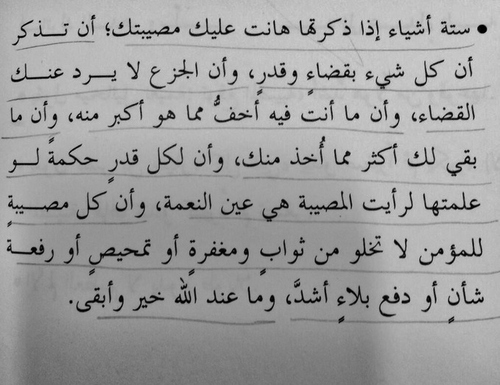 • ستة أشياء إذا ذكرتها هانت عليك مصيبتك؛ أن تـذكر
أن كل شيء بقضاءٍ وقدرٍ، وأن الجزع لا يـرد عنـك
القضاء، وأن ما أنت فيه أخفُّ مما هو أكبر منه، وأن ما
بقي لك أكثر مما أُخذ منك، وأن لكل قدرٍ حكمةً لـو
علمتها لرأيت المصيبة هي عين النعمة، وأن كل مصـيبةٍ
للمؤمن لا تخلو من ثوابٍ ومغفرةٍ أو تمحيصٍ أو رفعـة
شأنٍ أو دفع بلاءٍ أشدَّ، وما عند الله خير وأبقى.